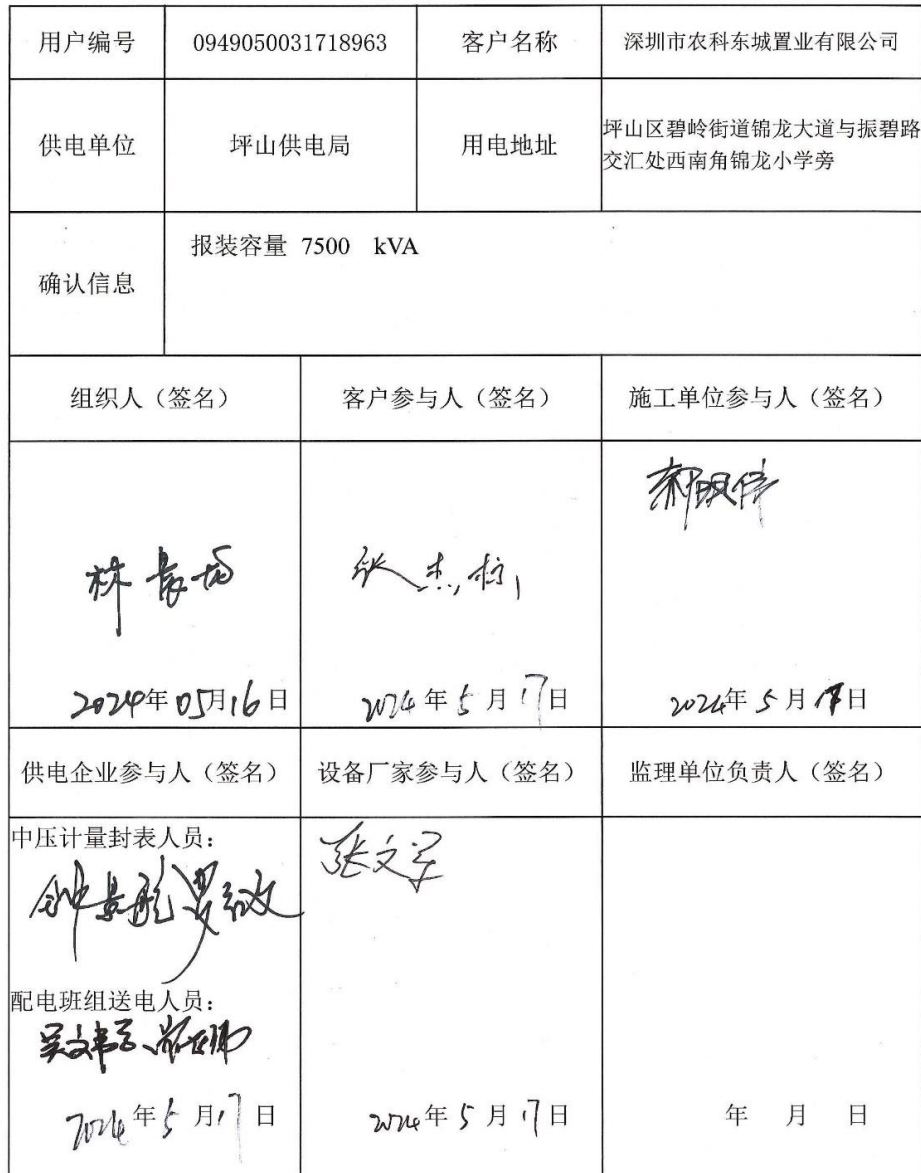 用户编号 0949050031718963 客户名称 深圳市农科东城置业有限公司
供电单位 坪山供电局 用电地址 坪山区碧岭街道锦龙大道与振碧路
交汇处西南角锦龙小学旁
确认信息 报装容量 7500 kVA
组织人（签名） 客户参与人（签名） 施工单位参与人（签名）
林
张杰
2024年05月16日 2024年5月17日 2024年5月17日
供电企业参与人（签名） 设备厂家参与人（签名） 监理单位负责人（签名）
中压计量封表人员：
张文军
钟
配电班组送电人员：
吴文
2024年5月17日 2024年5月17日 年 月 日